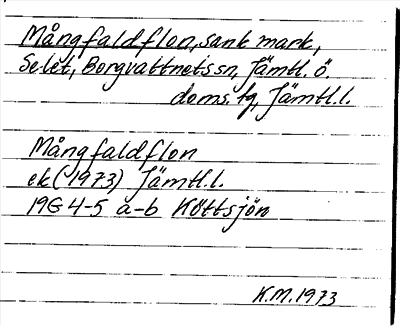 Mångfaldflon, sank mark,
Selet, Borgvattnets sn, Jämtl. ö.
doms. tg, Jämtl. l.
Mångfaldflon
ek (1973) Jämtl. l.
19G 4-5 a-b Köttsjön
K.M. 1973